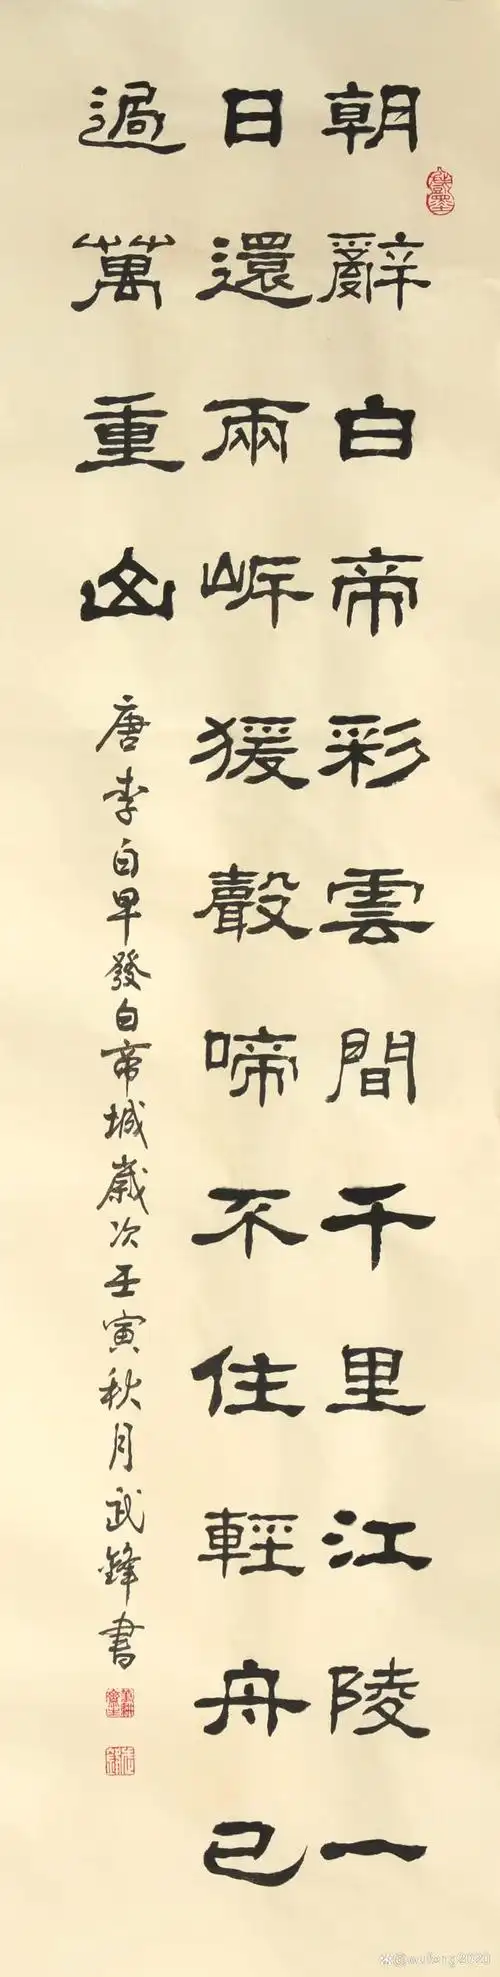 朝辭白帝彩雲間千里江陵一
日還兩岍猨聲啼不住輕舟已
過萬重山
唐李白早發白帝城歲次壬寅秋月武鋒書
@wufeng2020